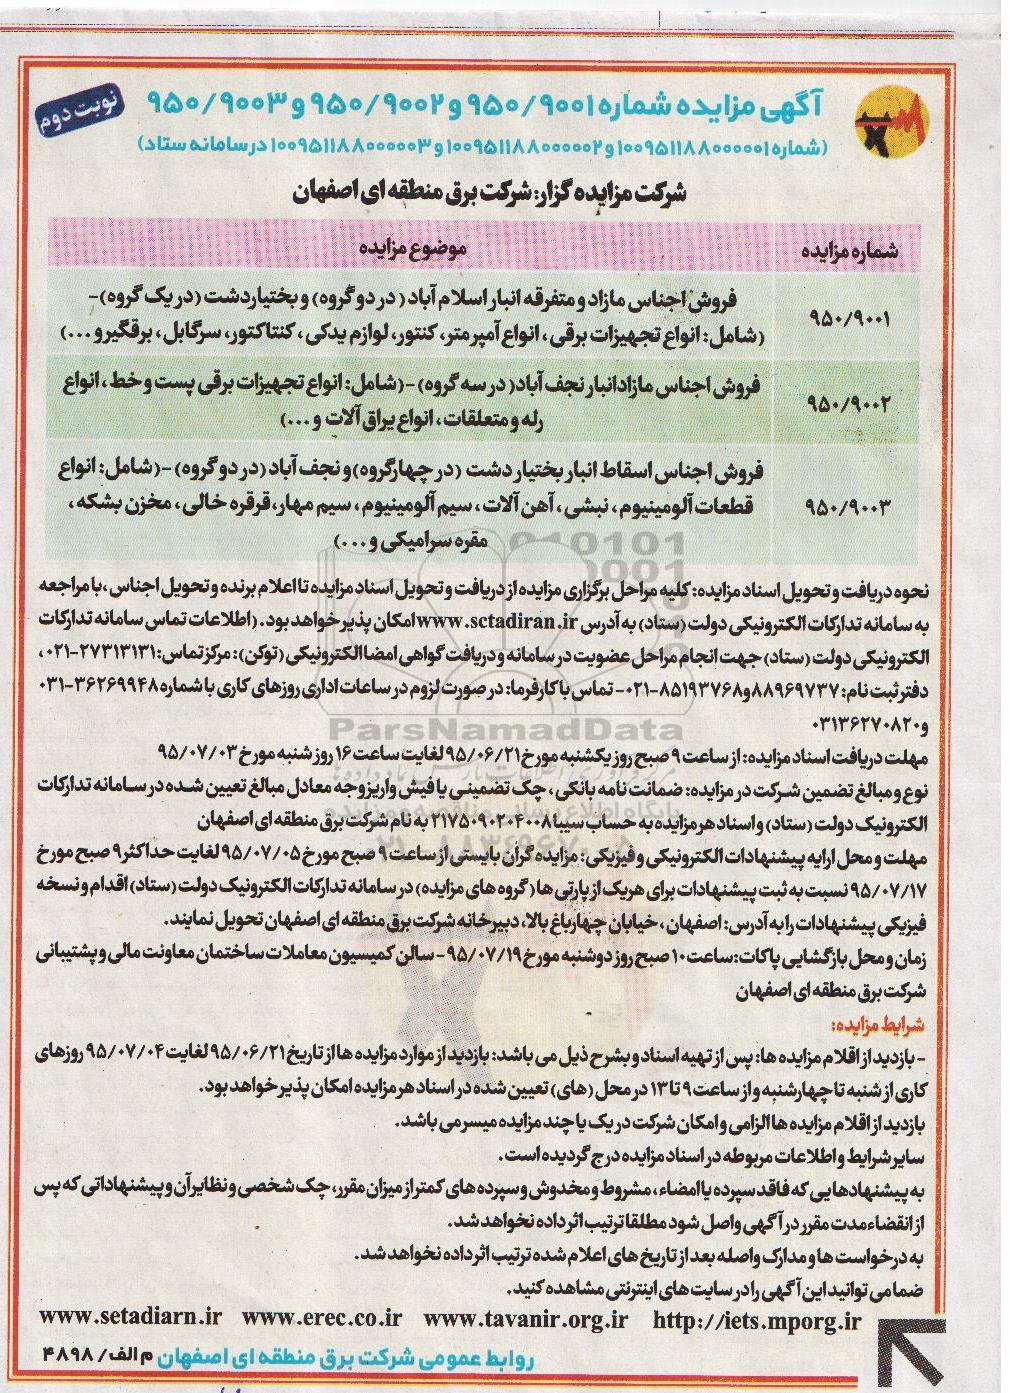 نوبت دوم
آگهی مزایده شماره ۹۵۰/۹۰۰۱ و ۹۵۰/۹۰۰۲ و ۹۵۰/۹۰۰۳
(شماره ۱۰۰۹۵۱۱۸۸۰۰۰۰۰۱ و ۱۰۰۹۵۱۱۸۸۰۰۰۰۰۲ و ۱۰۰۹۵۱۱۸۸۰۰۰۰۰۳ در سامانه ستاد)
شرکت مزایده گزار: شرکت برق منطقه ای اصفهان
شماره مزایده موضوع مزایده
فروش اجناس مازاد و متفرقه انبار اسلام آباد (در دو گروه) و بختیاردشت (در یک گروه)-
۹۵۰/۹۰۰۱
(شامل: انواع تجهیزات برقی، انواع آمپرمتر، کنتور، لوازم یدکی، کنتاکتور، سرکابل، برقگیر و ...)
فروش اجناس مازاد انبار نجف آباد (در سه گروه) -(شامل: انواع تجهیزات برقی پست و خط، انواع
۹۵۰/۹۰۰۲
رله و متعلقات، انواع یراق آلات و ...)
فروش اجناس اسقاط انبار بختیار دشت (در چهارگروه) و نجف آباد (در دو گروه) -(شامل: انواع
۹۵۰/۹۰۰۳
قطعات آلومینیوم، نبشی، آهن آلات، سیم آلومینیوم، سیم مهار، قرقره خالی، مخزن بشکه،
مقره سرامیکی و ...)
نحوه دریافت و تحویل اسناد مزایده: کلیه مراحل برگزاری مزایده از دریافت و تحویل اسناد مزایده تا اعلام برنده و تحویل اجناس، با مراجعه
به سامانه تدارکات الکترونیکی دولت (ستاد) به آدرس www.sctadiran.ir امکان پذیر خواهد بود. (اطلاعات تماس سامانه تدارکات
الکترونیکی دولت (ستاد) جهت انجام مراحل عضویت در سامانه و دریافت گواهی امضا الکترونیکی (توکن): مرکز تماس: ۲۷۳۱۳۱۳۱-۰۲۱،
دفتر ثبت نام: ۸۸۹۶۹۷۳۷ و ۸۵۱۹۳۷۶۸-۰۲۱- تماس با کارفرما: در صورت لزوم در ساعات اداری روزهای کاری با شماره ۳۶۲۶۹۹۴۸-۰۳۱
و ۰۳۱۳۶۲۷۰۸۲۰
مهلت دریافت اسناد مزایده: از ساعت ۹ صبح روز یکشنبه مورخ ۹۵/۰۶/۲۱ لغایت ساعت ۱۶ روز شنبه مورخ ۹۵/۰۷/۰۳
نوع و مبالغ تضمین شرکت در مزایده: ضمانت نامه بانکی، چک تضمینی یا فیش واریز وجه معادل مبالغ تعیین شده در سامانه تدارکات
الکترونیک دولت (ستاد) و اسناد هر مزایده به حساب سیبا ۲۱۷۵۰۹۰۲۰۴۰۰۸ به نام شرکت برق منطقه ای اصفهان
مهلت و محل ارایه پیشنهادات الکترونیکی و فیزیکی: مزایده گران بایستی از ساعت ۹ صبح مورخ ۹۵/۰۷/۰۵ لغایت حداکثر ۹ صبح مورخ
۹۵/۰۷/۱۷ نسبت به ثبت پیشنهادات برای هریک از پارتی ها (گروه های مزایده) در سامانه تدارکات الکترونیک دولت (ستاد) اقدام و نسخه
فیزیکی پیشنهادات را به آدرس: اصفهان، خیابان چهارباغ بالا، دبیرخانه شرکت برق منطقه ای اصفهان تحویل نمایند.
زمان و محل بازگشایی پاکات: ساعت ۱۰ صبح روز دوشنبه مورخ ۹۵/۰۷/۱۹ - سالن کمیسیون معاملات ساختمان معاونت مالی و پشتیبانی
شرکت برق منطقه ای اصفهان
شرایط مزایده:
- بازدید از اقلام مزایده ها: پس از تهیه اسناد و بشرح ذیل می باشد: بازدید از موارد مزایده ها از تاریخ ۹۵/۰۶/۲۱ لغایت ۹۵/۰۷/۰۴ روزهای
کاری از شنبه تا چهارشنبه و از ساعت ۹ تا ۱۳ در محل (های) تعیین شده در اسناد هر مزایده امکان پذیر خواهد بود.
بازدید از اقلام مزایده ها الزامی و امکان شرکت در یک یا چند مزایده میسر می باشد.
سایر شرایط و اطلاعات مربوطه در اسناد مزایده درج گردیده است.
به پیشنهادهایی که فاقد سپرده یا امضاء، مشروط و مخدوش و سپرده های کمتر از میزان مقرر، چک شخصی و نظایر آن و پیشنهاداتی که پس
از انقضاء مدت مقرر در آگهی واصل شود مطلقا ترتیب اثر داده نخواهد شد.
به درخواست ها و مدارک واصله بعد از تاریخ های اعلام شده ترتیب اثر داده نخواهد شد.
ضمنا می توانید این آگهی را در سایت های اینترنتی مشاهده کنید.
www.setadiarn.ir www.erec.co.ir www.tavanir.org.ir http://iets.mporg.ir
روابط عمومی شرکت برق منطقه ای اصفهان م الف/ ۴۸۹۸
ParsNamadData